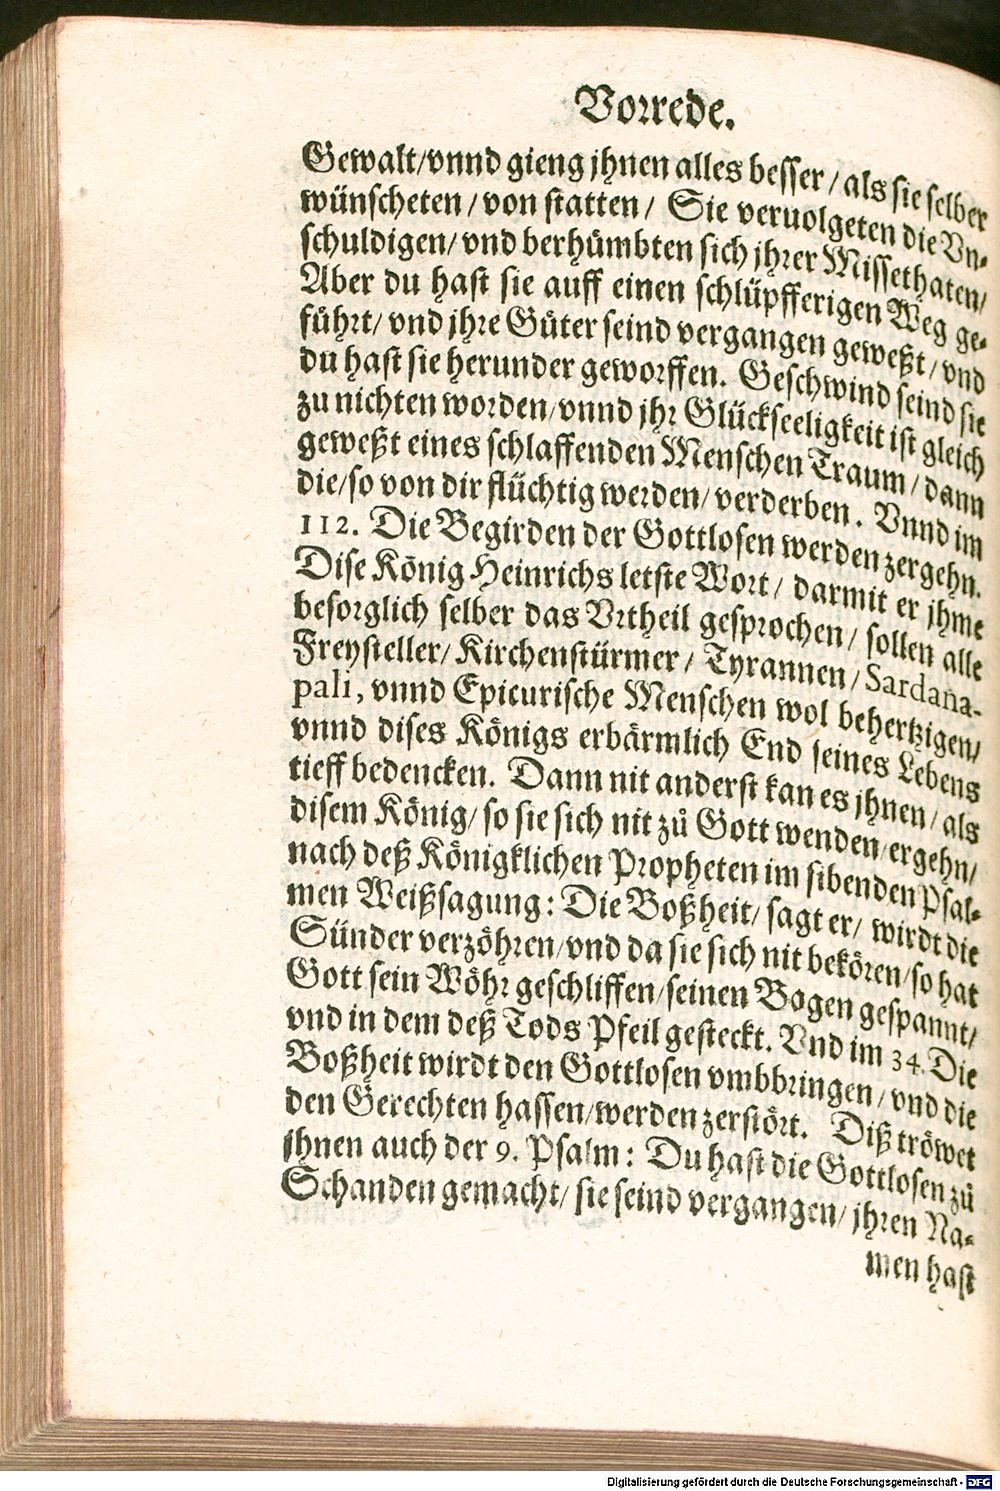 Vorrede.
Gewalt/vnnd gieng jhnen alles besser/als sie selber
wünscheten/von statten/ Sie veruolgeten die Vn-
schuldigen/vnd berhümbten sich jhrer Missethaten/
Aber du hast sie auff einen schlüpfferigen Weg ge-
führt/vnd jhre Güter seind vergangen geweßt/vnd
du hast sie herunder geworffen. Geschwind seind sie
zu nichten worden/vnnd jhr Glückseeligkeit ist gleich
geweßt eines schlaffenden Menschen Traum/dann
die/so von dir flüchtig werden/verderben. Vnnd im
112. Die Begirden der Gottlosen werden zergehn.
Dise König Heinrichs letste Wort/darmit er jhme
besorglich selber das Vrtheil gesprochen/sollen alle
Freysteller/Kirchenstürmer/Tyrannen/Sardana-
pali, vnnd Epicurische Menschen wol behertzigen/
vnnd dises Königs erbärmlich End seines Lebens
tieff bedencken. Dann nit anderst kan es jhnen/als
disem König/so sie sich nit zů Gott wenden/ergehn/
nach deß Königklichen Propheten im sibenden Psal-
men Weißsagung: Die Boßheit/sagt er/wirdt die
Sünder verzöhren/vnd da sie sich nit bekören/so hat
Gott sein Wöhr geschliffen/seinen Bogen gespannt/
vnd in dem deß Tods Pfeil gesteckt. Vnd im 34. Die
Boßheit wirdt den Gottlosen vmbbringen/vnd die
den Gerechten hassen/werden zerstört. Diß tröwet
jhnen auch der 9. Psalm: Du hast die Gottlosen zů
Schanden gemacht/sie seind vergangen/jhren Na-
men hast
Digitalisierung gefördert durch die Deutsche Forschungsgemeinschaft - DFG